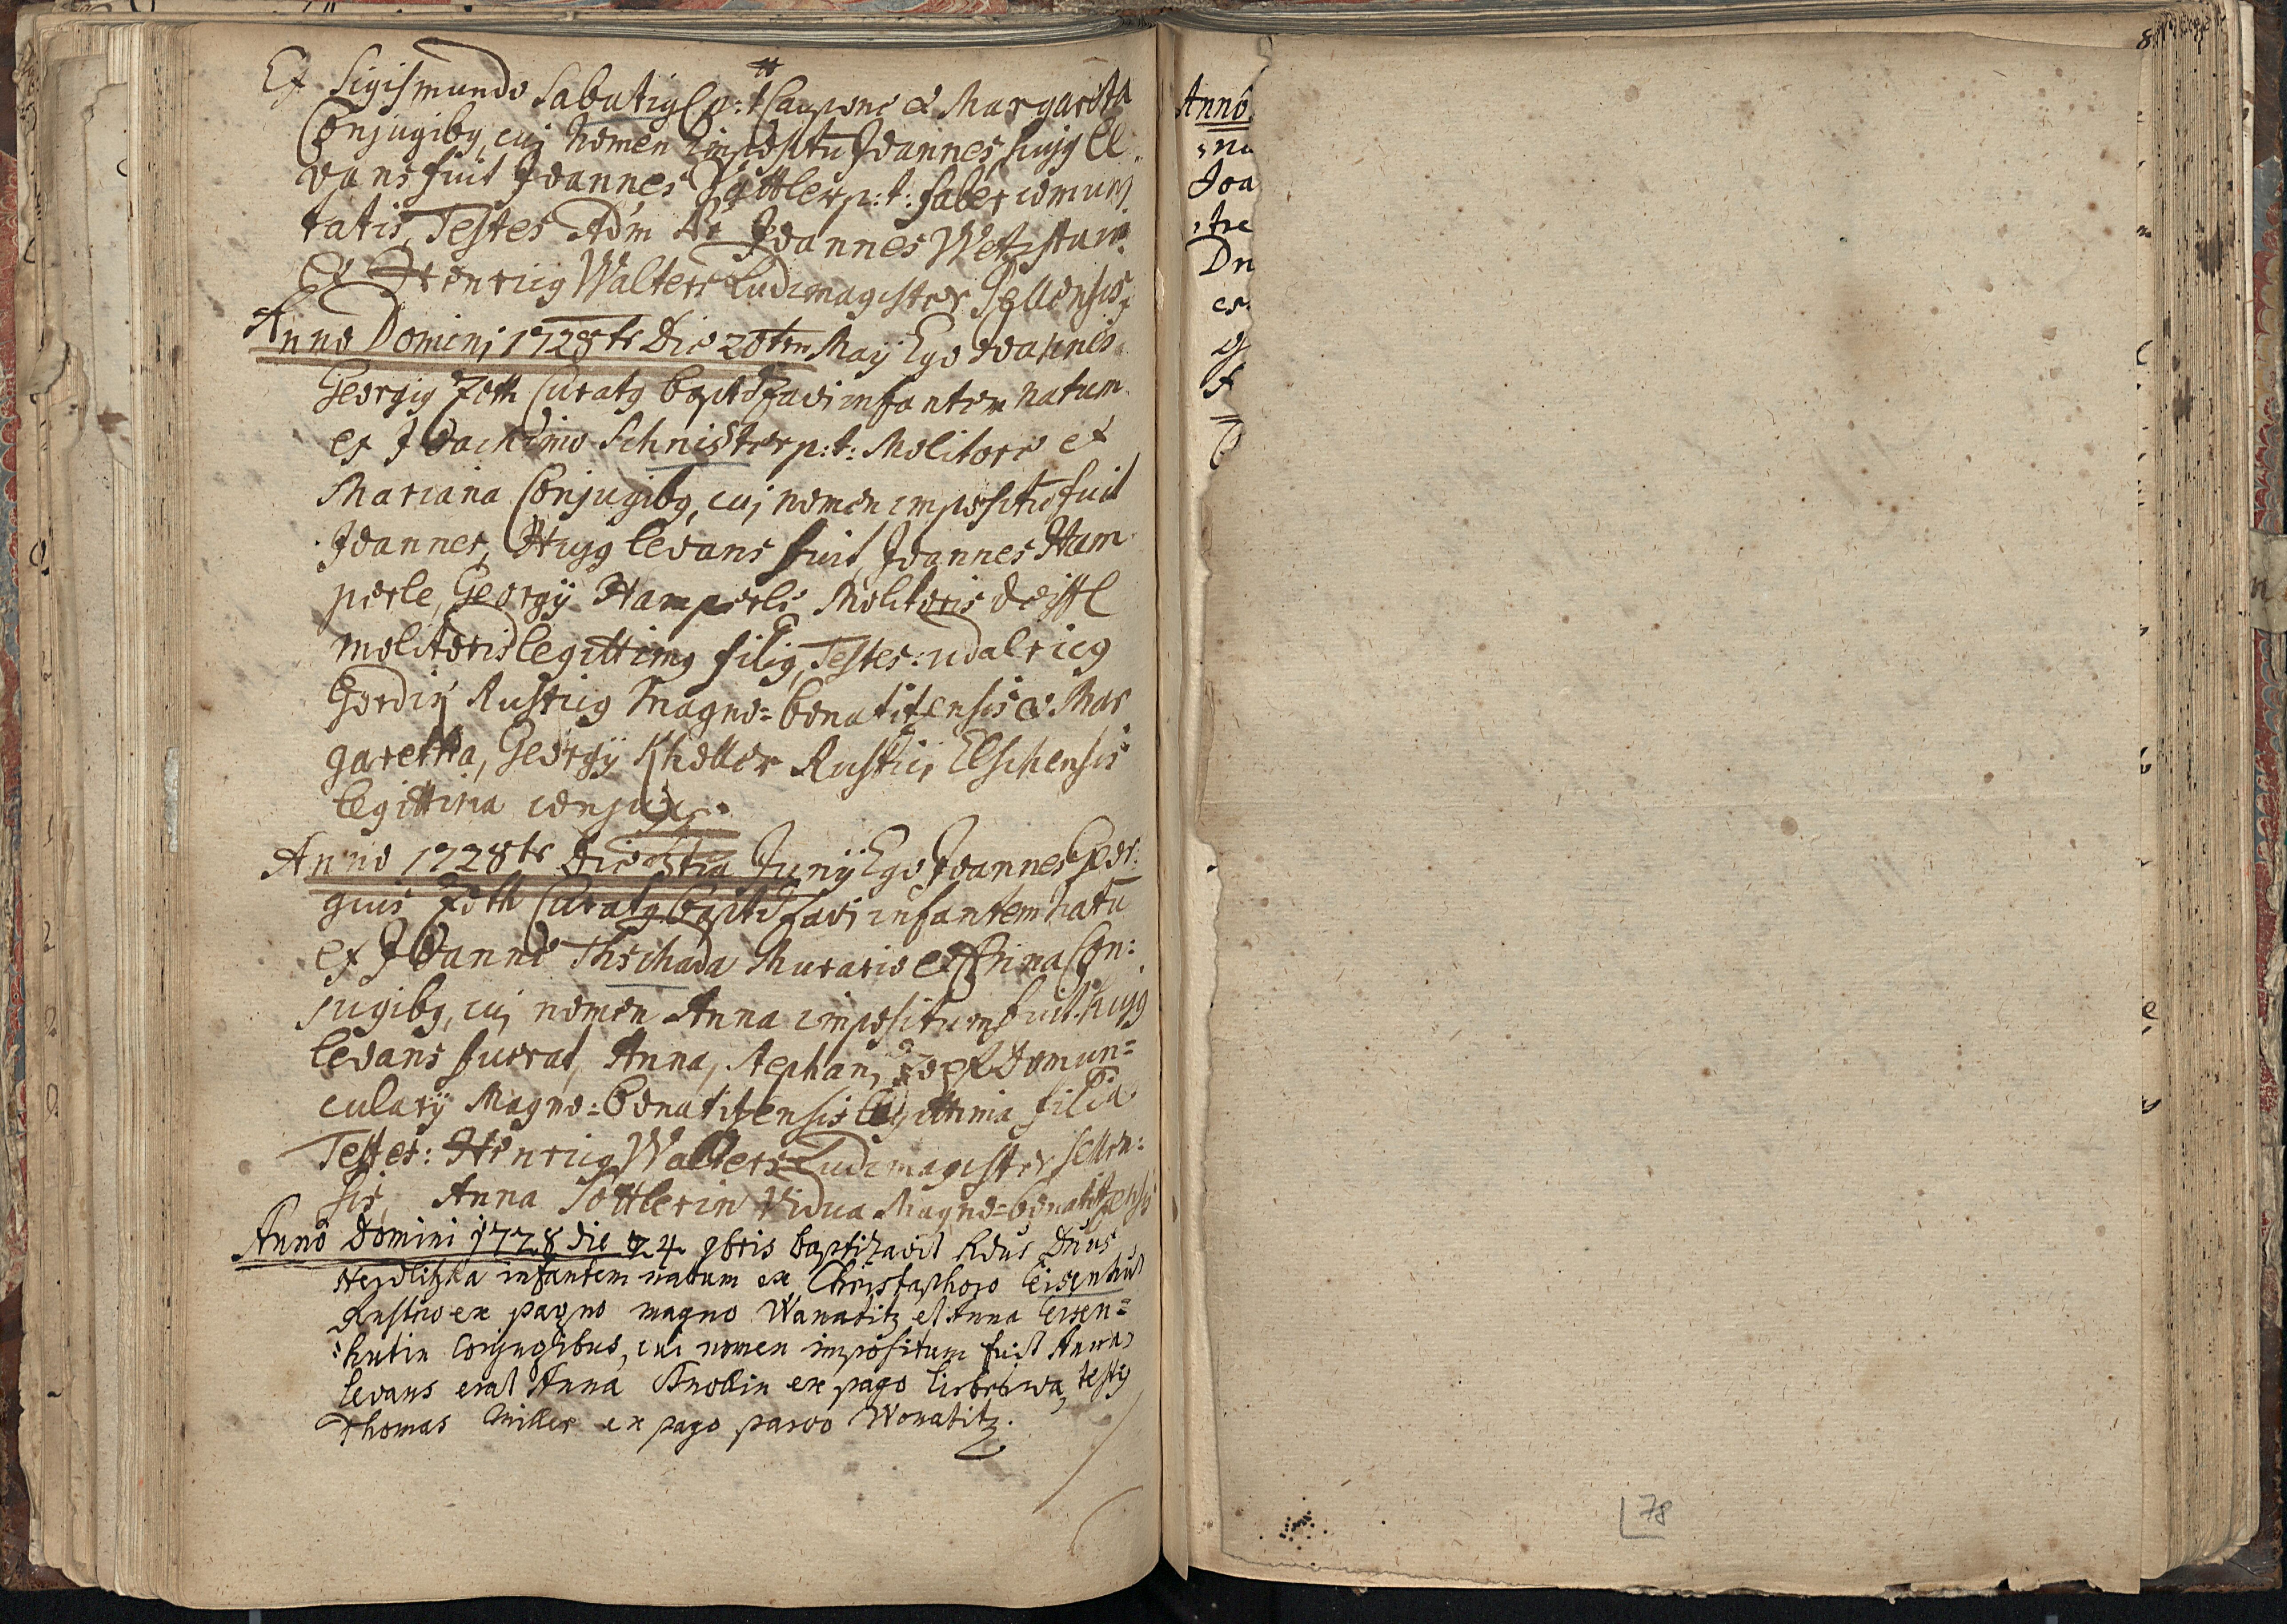 Ex Sigismundo Sabutig p: t Caupone & Margareta
Conjugibg, cuj Nomen impositũ Joannes hujg le
vans fuit Joannes Sattler p: t: faber comuni
tatis, Testes Adm Joannes Wetzstein
Et Henricg Walters Ludimagister Sellensis
Anno Domini 1728 Die 20 May Ego Joannes
Georgig Zoth Curatg baptizavi infantem natum
ex Joachimo Schnister p: t: Molitore et
Mariana Conjugibg, cuj nomen impositũ fuit
Joannes, Hujg levans fuit, Joannes Ham
perle, Georgÿ Hamperle Molitoris
molitoris legittimg filig, Testes: udalricg
Gordin Rusticg Magno=bonatitensis & Mar
garetha, Georgÿ Kheller Rustici Elschensis
legittima conjux.
Anno 1728 Die Junÿ Ego Joannes Geor:
gius Zoth Curatg baptizavi infantem natũ
ex Joanne Thschada Murario et Con:
jugibg, cuj nomen Anna impositum fuit. hujg
levans fuerat, Anna, Stephani Domun=
cularÿ Magno=bonatitensis legittima filia
Testes: Henricg Walters Ludimagister sellen:
sis, Anna Sottlerin Vidua Magno=bonatitensis
Anno Domini 1728 die 4. 9bris baptizavit Rdus Dnus
Herdlitzka infantem natum ex Christophoro Eisenhut
Rustico ex pagno magno Wanatitz et Anna Eisen=
:hutin Conjugibus, cui nomen impositum fuit Anna
levans erat Anna Knollin ex pago testg
Thomas Miller ex pago parvo Wonatitz.
Anno
Joa
Dn
78